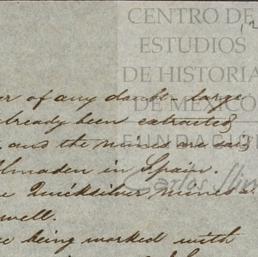 CENTRO DE
ESTUDIOS
DE HISTORIA
DE MEXICO
FUNDACIÓN
Carlos Slim
of any doubt - large
already been extracted
and the mines are said
Almaden in Spain.
Quicksilver mines
well.
being worked with